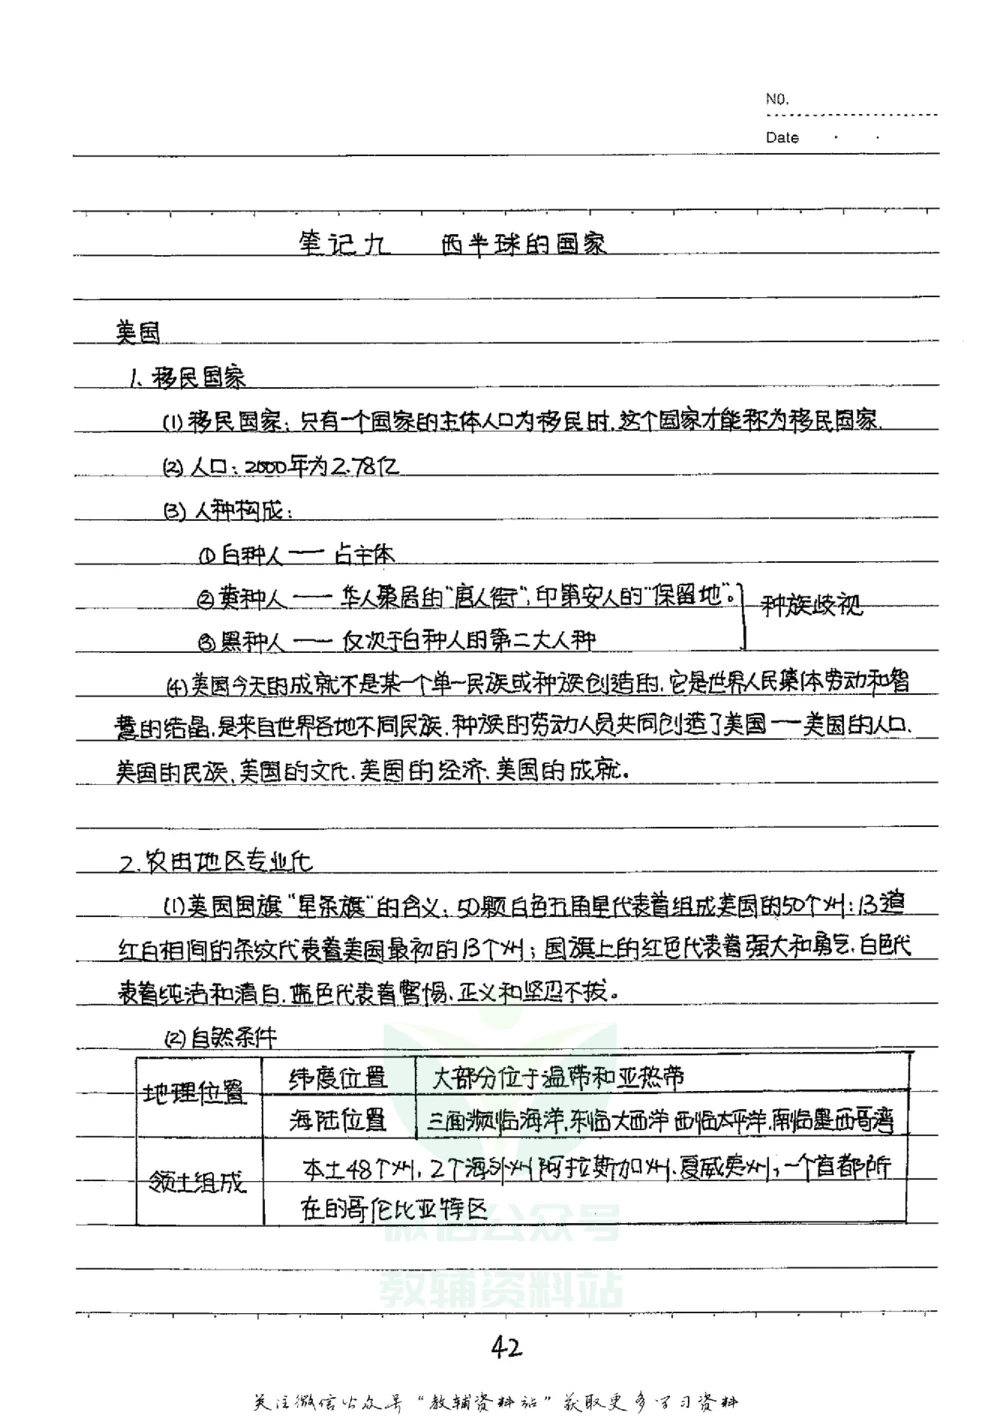 NO.
Date
笔记九 西半球的国家
美国
1、移民国家
(1)移民国家:只有一个国家的主体人口为移民时,这个国家才能称为移民国家.
(2)人口:2000年为2.78亿
(3)人种构成:
①白种人——占主体
②黄种人——华人聚居的“唐人街”,印第安人的“保留地”。
种族歧视
③黑种人——仅次于白种人的第二大人种
(4)美国今天的成就不是某一个单一民族或种族创造的,它是世界人民集体劳动和智
慧的结晶,是来自世界各地不同民族、种族的劳动人员共同创造了美国——美国的人口、
美国的民族、美国的文化、美国的经济、美国的成就。
2.农田地区专业化
(1)美国国旗“星条旗”的含义:50颗白色五角星代表着组成美国的50个州;13道
红白相间的条纹代表着美国最初的13个州;国旗上的红色代表着强大和勇气,白色代
表着纯洁和清白,蓝色代表着警惕、正义和坚忍不拔。
(2)自然条件
地理位置 纬度位置 大部分位于温带和亚热带
海陆位置 三面濒临海洋,东临大西洋 西临太平洋,南临墨西哥湾
领土组成 本土48个州,2个海外州阿拉斯加州、夏威夷州,一个首都所
在的哥伦比亚特区
微信公众号
教辅资料站
42
关注微信公众号“教辅资料站”获取更多学习资料